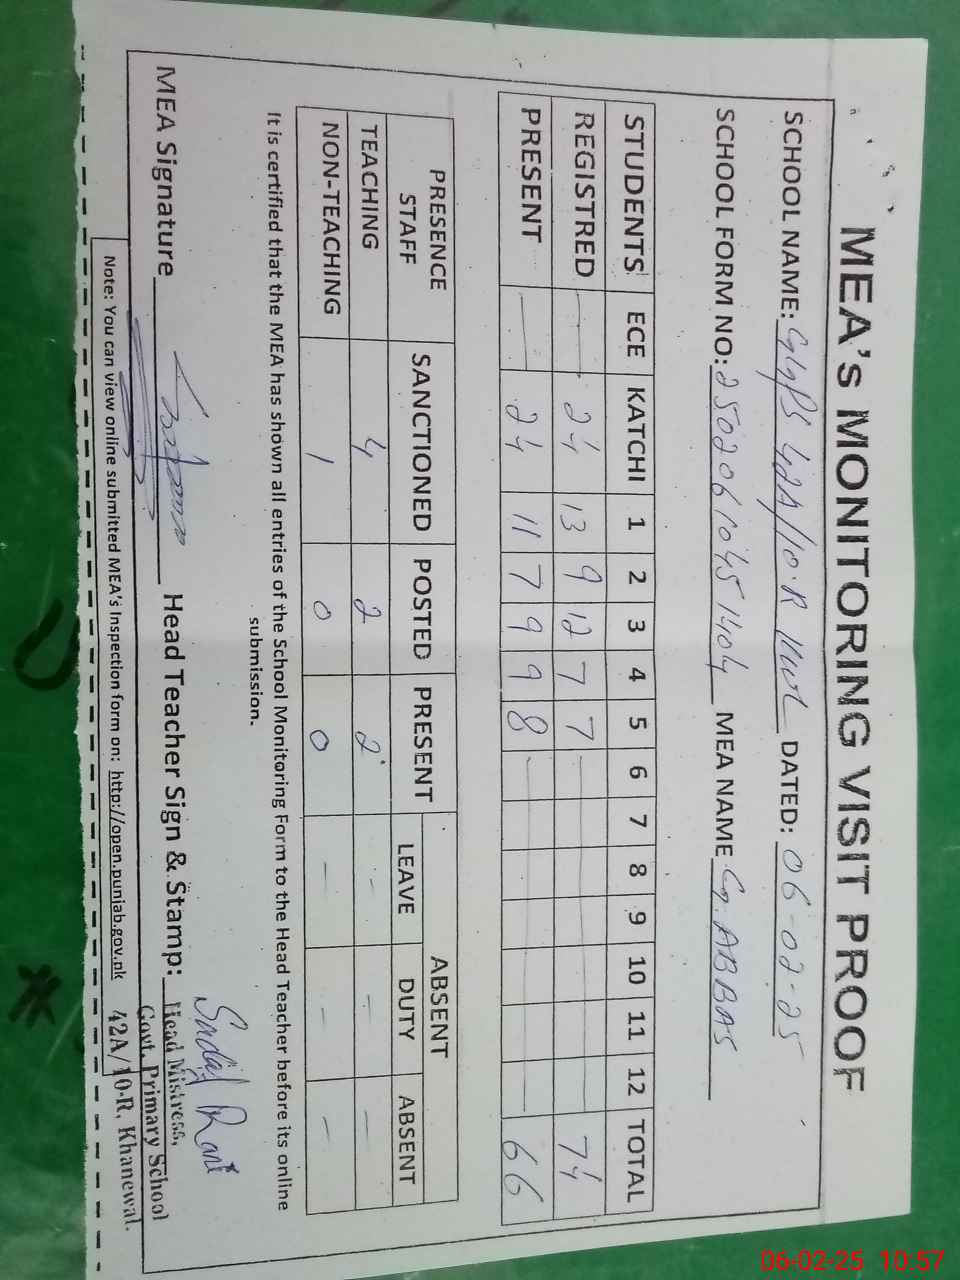 MEA's MONITORING VISIT PROOF
SCHOOL NAME: GGPS 42A/10.R KWL DATED: 06-02-25
SCHOOL FORM NO: 2502061045 1404 MEA NAME G. ABBAS
STUDENTS ECE KATCHI 1 2 3 4 5 6 7 8 9 10 11 12 TOTAL
REGISTRED — 24 13 9 12 7 7 — 74
PRESENT — 24 11 7 9 9 8 — 66
PRESENCE STAFF SANCTIONED POSTED PRESENT ABSENT
LEAVE DUTY ABSENT
TEACHING 4 2 2 — — —
NON-TEACHING 1 0 0 — — —
It is certified that the MEA has shown all entries of the School Monitoring Form to the Head Teacher before its online
submission.
MEA Signature Head Teacher Sign & Stamp:
Head Mistress,
Govt. Primary School
42A/10-R, Khanewal.
Note: You can view online submitted MEA's Inspection form on: http://open.punjab.gov.pk
06-02-25 10:57